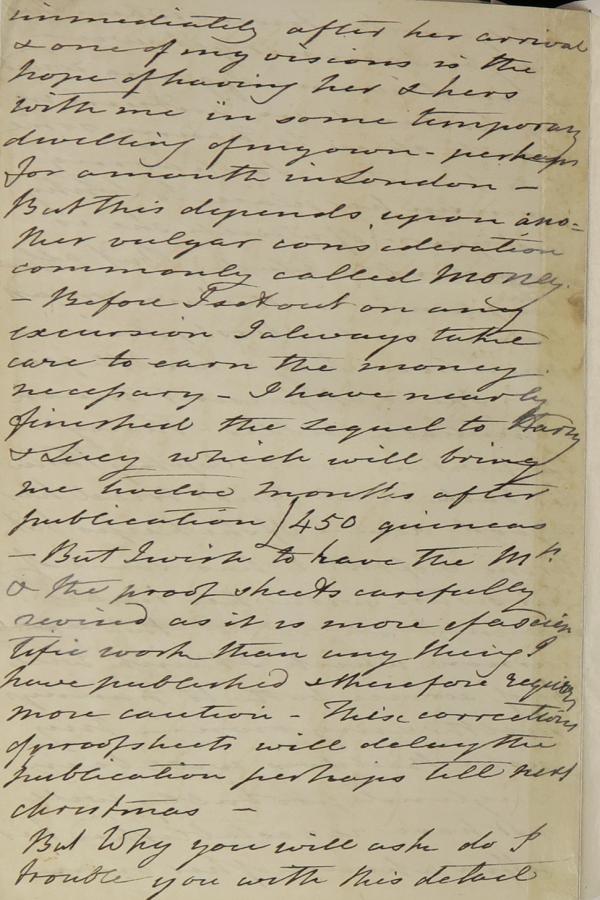 immediately after her arrival
& one of my visions is the
hope of having her & hers
with me in some temporary
dwelling of my own - perhaps
for a month in London -
But this depends upon ano=
ther vulgar consideration
commonly called Money.
- Before I set out on any
excursion I always take
care to earn the money
necessary - I have nearly
finished the sequel to Harry
& Lucy which will bring
me twelve months after
publication 450 guineas
- But I wish to have the Mss.
& the proof sheets carefully
revised as it is more of a scien
tific work than any thing I
have published & therefore requires
more caution - This correction
of proof sheets will delay the
publication perhaps till next
christmas -
But Why you will ask do I
trouble you with this detail